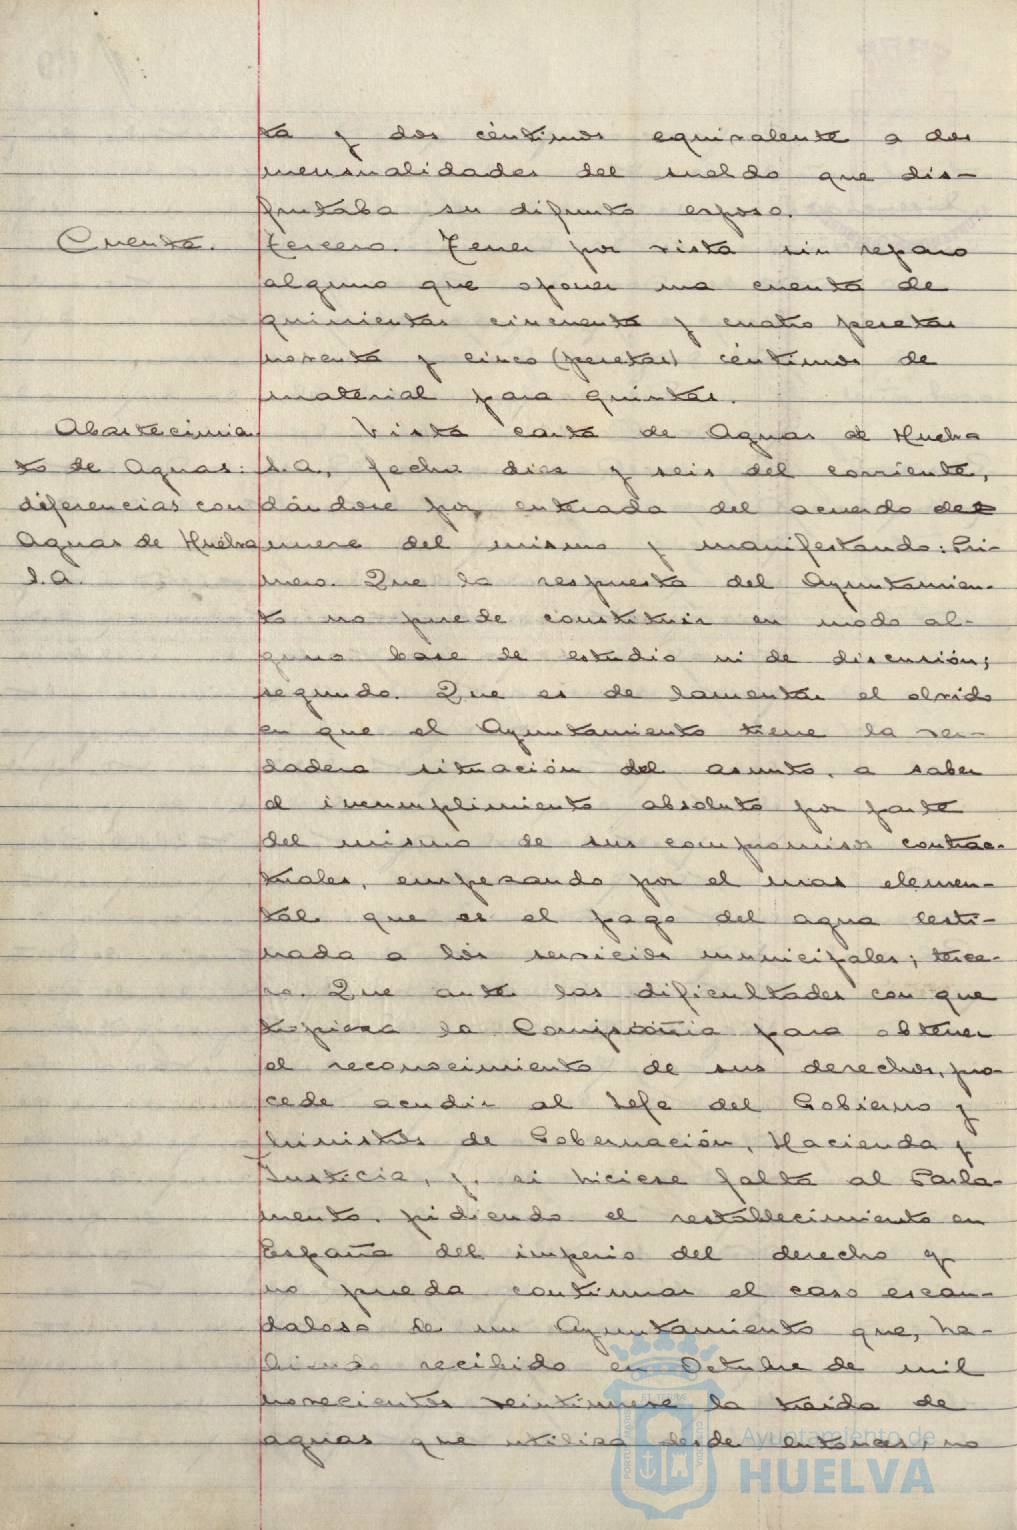 ta y dos céntimos equivalente a dos
mensualidades del sueldo que dis-
frutaba su difunto esposo.
Cuenta.
tercero. Tener por vista sin reparo
alguno que oponer una cuenta de
quinientas cincuenta y cuatro pesetas
noventa y cinco (pesetas) céntimos de
material para quintas.
Abastecimien
to de Aguas:
diferencias con
Aguas de Huelva
S.A.
Vista carta de Aguas de Huelva
S.A, fecha dies y seis del corriente,
dándose por enterada del acuerdo del
nueve del mismo y manifestando: Pri-
mero. Que la respuesta del Ayuntamien-
to no puede constituir en modo al-
guno base de estudio ni de discusión;
segundo. Que es de lamentar el olvido
en que el Ayuntamiento tiene la ver-
dadera situación del asunto, a saber
el incumplimiento absoluto por parte
del mismo de sus compromisos contrac-
tuales, empezando por el mas elemen-
tal que es el pago del agua desti-
nada a los servicios municipales; terce-
ro. Que ante las dificultades con que
tropieza la Compañia para obtener
el reconocimiento de sus derechos, pro-
cede acudir al Jefe del Gobierno y
Ministros de Gobernación, Hacienda y
Justicia, y, si hiciese falta al Parla-
mento, pidiendo el restablecimiento en
España del imperio del derecho y
no pueda continuar el caso escan-
daloso de un Ayuntamiento que, ha-
biendo recibido en Octubre de mil
novecientos veintinueve la traida de
aguas que utiliza desde entonces, no
Ayuntamiento de
HUELVA